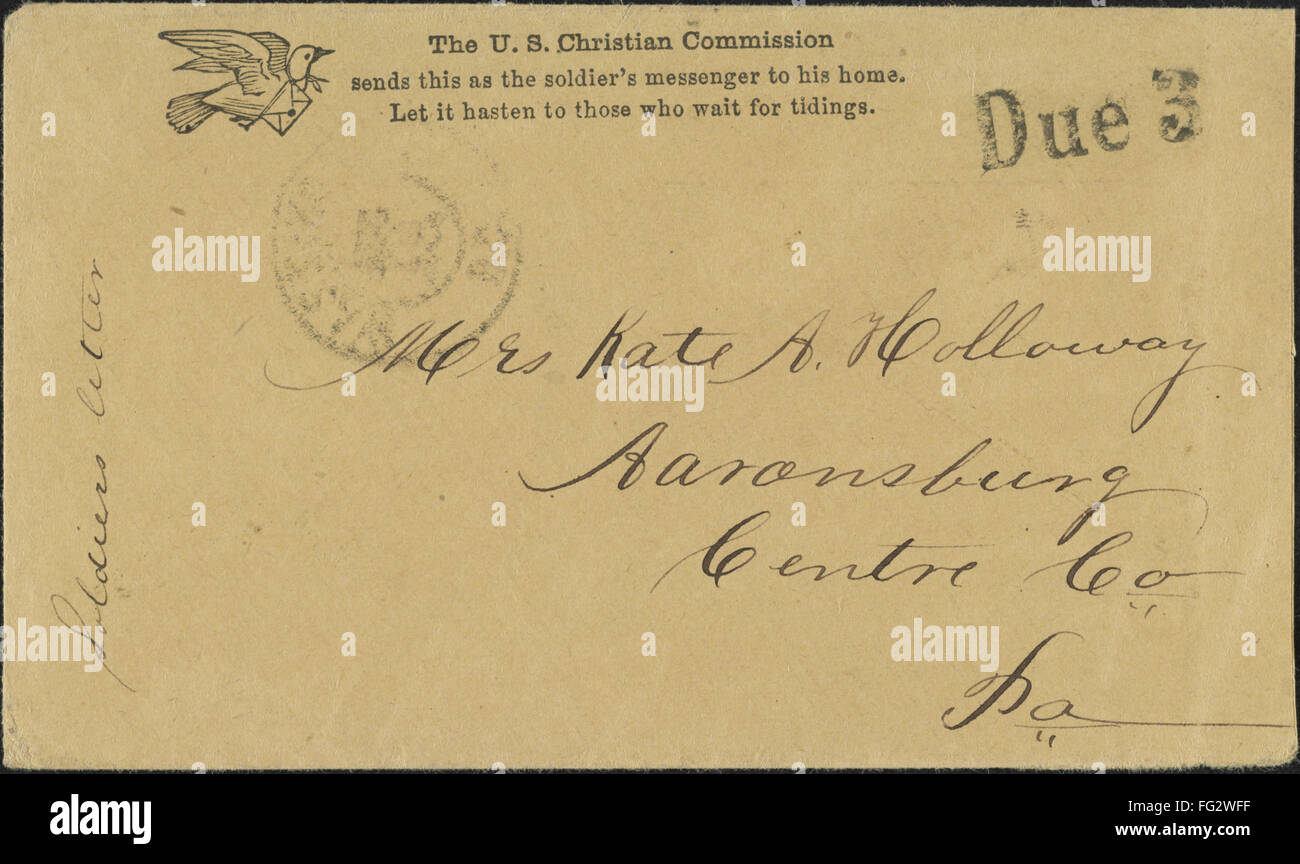 The U. S. Christian Commission
sends this as the soldier's messenger to his home.
Let it hasten to those who wait for tidings.
Due 3
Soldiers letter
Mrs Kate A. Holloway
Aaronsburg
Centre Co
Pa
alamy stock photo
FG2WFF
www.alamy.com